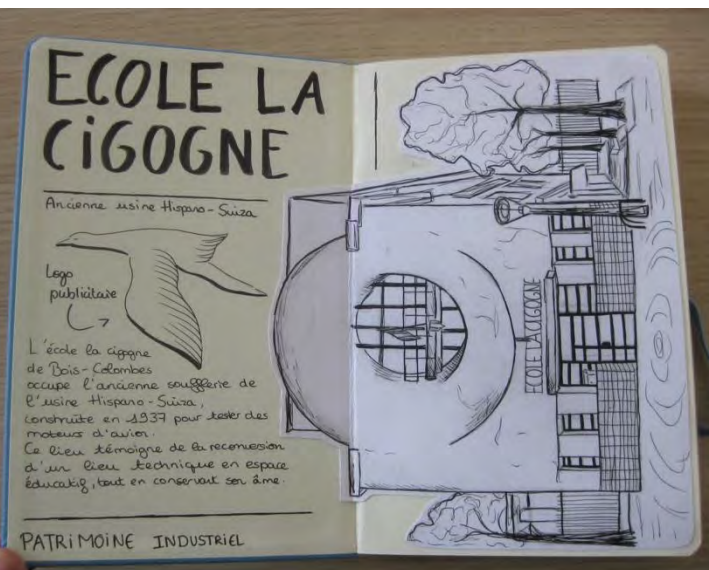 ECOLE LA
CiGOGNE
Ancienne usine Hispano-Suiza
Logo
publicitaire
L'école la cigogne
de Bois-Colombes
occupe l'ancienne soufflerie de
l'usine Hispano-Suiza,
construite en 1937 pour tester des
moteurs d'avion.
Ce lieu témoigne de la reconversion
d'un lieu technique en espace
éducatif, tout en conservant son âme.
PATRiMOINE INDUSTRiEL
ECOLE LA CIGOGNE